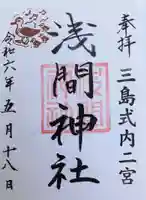 奉拝
三島式内二宮
浅間神社
令和六年五月十八日